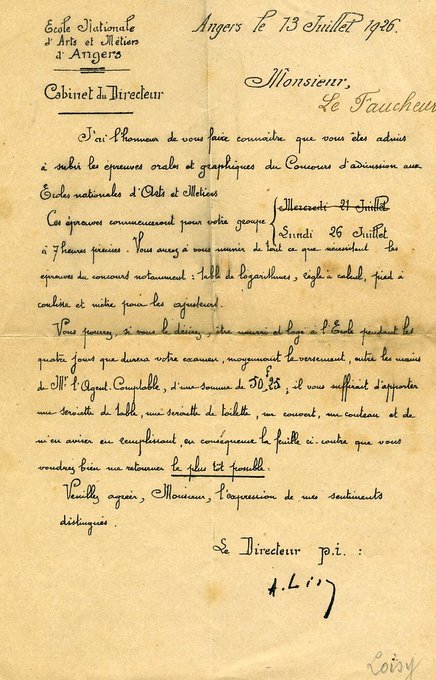 Ecole Nationale
d'Arts et Métiers
d'Angers
Cabinet du Directeur
Angers le 13 Juillet 1926.
Monsieur,
Le Faucheur
J'ai l'honneur de vous faire connaître que vous êtes admis
à subir les épreuves orales et graphiques du Concours d'admission aux
Ecoles nationales d'Arts et Métiers
Mercredi 21 Juillet
Ces épreuves commenceront pour votre groupe
Lundi 26 Juillet
à 7 heures précises. Vous aurez à vous munir de tout ce que nécessitent les
épreuves du concours notamment : table de logarithmes, règle à calcul, pied à
coulisse et mètre pour les ajusteurs.
Vous pourrez, si vous le désirez, être nourri et logé à l'Ecole pendant les
quatre jours que durera votre examen, moyennant le versement, entre les mains
de Mr. l'Agent-Comptable, d'une somme de 50F25, il vous suffirait d'apporter
une serviette de table, une serviette de toilette, un couvert, un couteau et de
m'en aviser en remplissant en conséquence la feuille ci-contre que vous
voudrez bien me retourner le plus tôt possible :
Veuillez agréer, Monsieur, l'expression de mes sentiments
distingués.
Le Directeur p.i. :
Loisy